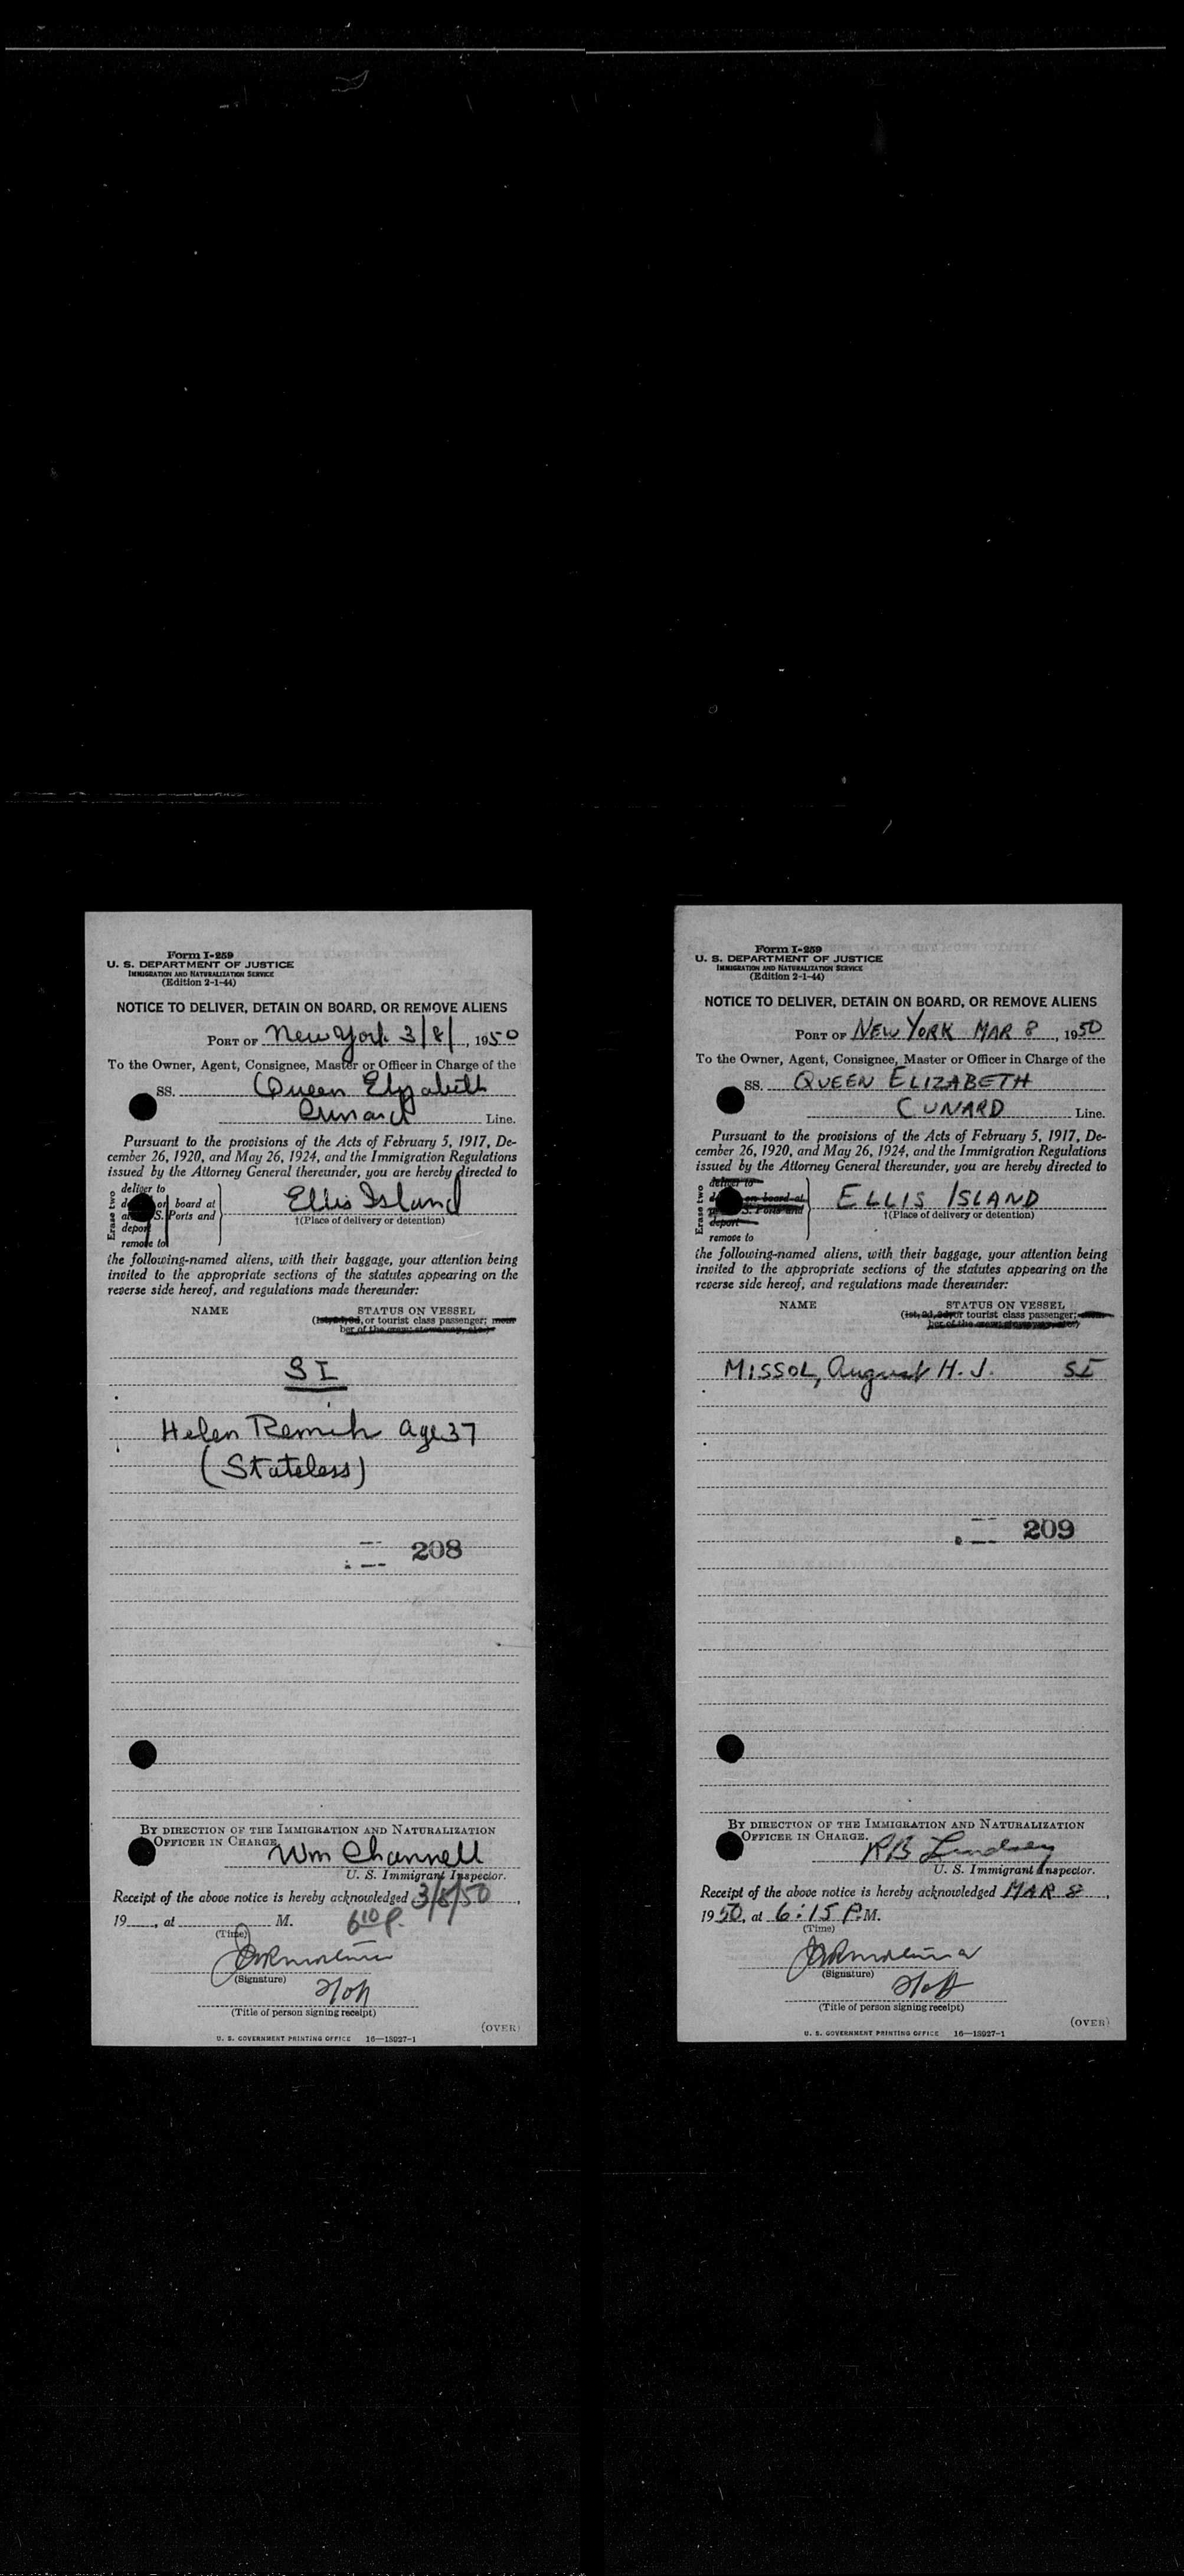 Form I-259
U. S. DEPARTMENT OF JUSTICE
IMMIGRATION AND NATURALIZATION SERVICE
(Edition 2-1-44)
NOTICE TO DELIVER, DETAIN ON BOARD, OR REMOVE ALIENS
PORT OF New York 3/8/, 1950
To the Owner, Agent, Consignee, Master or Officer in Charge of the
SS. Queen Elizabeth
Cunard Line.
Pursuant to the provisions of the Acts of February 5, 1917, De-
cember 26, 1920, and May 26, 1924, and the Immigration Regulations
issued by the Attorney General thereunder, you are hereby directed to
Erase two
deliver to
board at
S. Ports and
deport
remove to
Ellis Island
†(Place of delivery or detention)
the following-named aliens, with their baggage, your attention being
invited to the appropriate sections of the statutes appearing on the
reverse side hereof, and regulations made thereunder:
NAME STATUS ON VESSEL
(1st, 2d, 3d, or tourist class passenger; mem-
ber of the crew; stowaway, etc.)
SI
Helen age 37
(Stateless)
208
BY DIRECTION OF THE IMMIGRATION AND NATURALIZATION
OFFICER IN CHARGE.
Wm Channell
U. S. Immigrant Inspector.
Receipt of the above notice is hereby acknowledged 3/8/50,
19____, at ____ M. 6 10 P.
(Time)
(Signature)
(Title of person signing receipt)
(OVER)
U. S. GOVERNMENT PRINTING OFFICE 16—18927-1
Form I-259
U. S. DEPARTMENT OF JUSTICE
IMMIGRATION AND NATURALIZATION SERVICE
(Edition 2-1-44)
NOTICE TO DELIVER, DETAIN ON BOARD, OR REMOVE ALIENS
PORT OF NEW YORK MAR 8, 1950
To the Owner, Agent, Consignee, Master or Officer in Charge of the
SS. QUEEN ELIZABETH
CUNARD Line.
Pursuant to the provisions of the Acts of February 5, 1917, De-
cember 26, 1920, and May 26, 1924, and the Immigration Regulations
issued by the Attorney General thereunder, you are hereby directed to
Erase two
deliver to
on board at
S. Ports and
deport
remove to
ELLIS ISLAND
†(Place of delivery or detention)
the following-named aliens, with their baggage, your attention being
invited to the appropriate sections of the statutes appearing on the
reverse side hereof, and regulations made thereunder:
NAME STATUS ON VESSEL
(1st, 2d, 3d, or tourist class passenger; mem-
ber of the crew; stowaway, etc.)
MISSOL, August H. J. SI
209
BY DIRECTION OF THE IMMIGRATION AND NATURALIZATION
OFFICER IN CHARGE.
RB Lindsey
U. S. Immigrant Inspector.
Receipt of the above notice is hereby acknowledged MAR 8,
1950, at 6:15 P.M.
(Time)
(Signature)
(Title of person signing receipt)
(OVER)
U. S. GOVERNMENT PRINTING OFFICE 16—18927-1